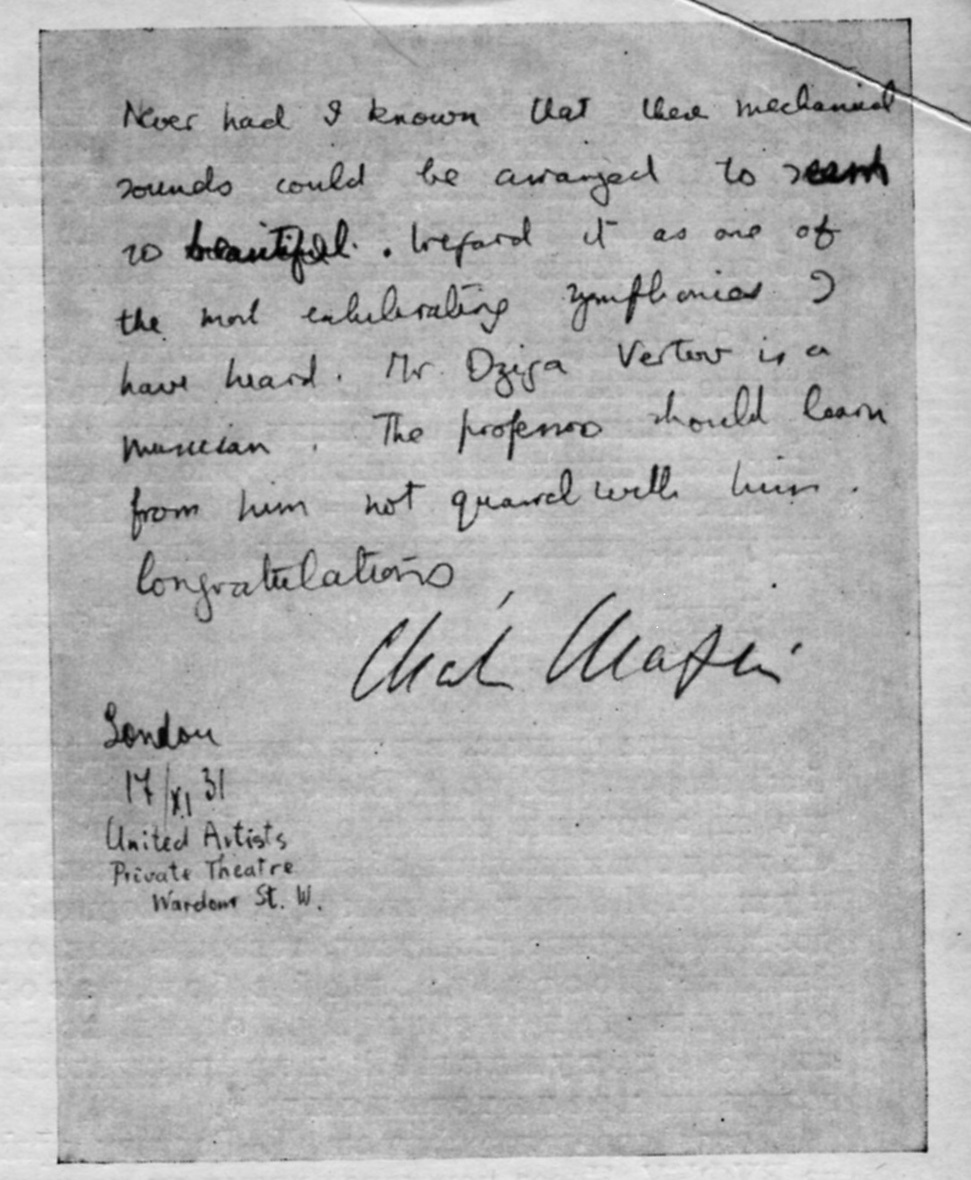 Never had I known that these mechanical
sounds could be arranged to seem
so beautiful. I regard it as one of
the most exhilerating symphonies I
have heard. Mr. Dziga Vertov is a
musician. The professors should learn
from him not quarrel with him.
Congratulations
Charles Chaplin
London
17/XI 31
United Artists
Private Theatre
Wardour St. W.